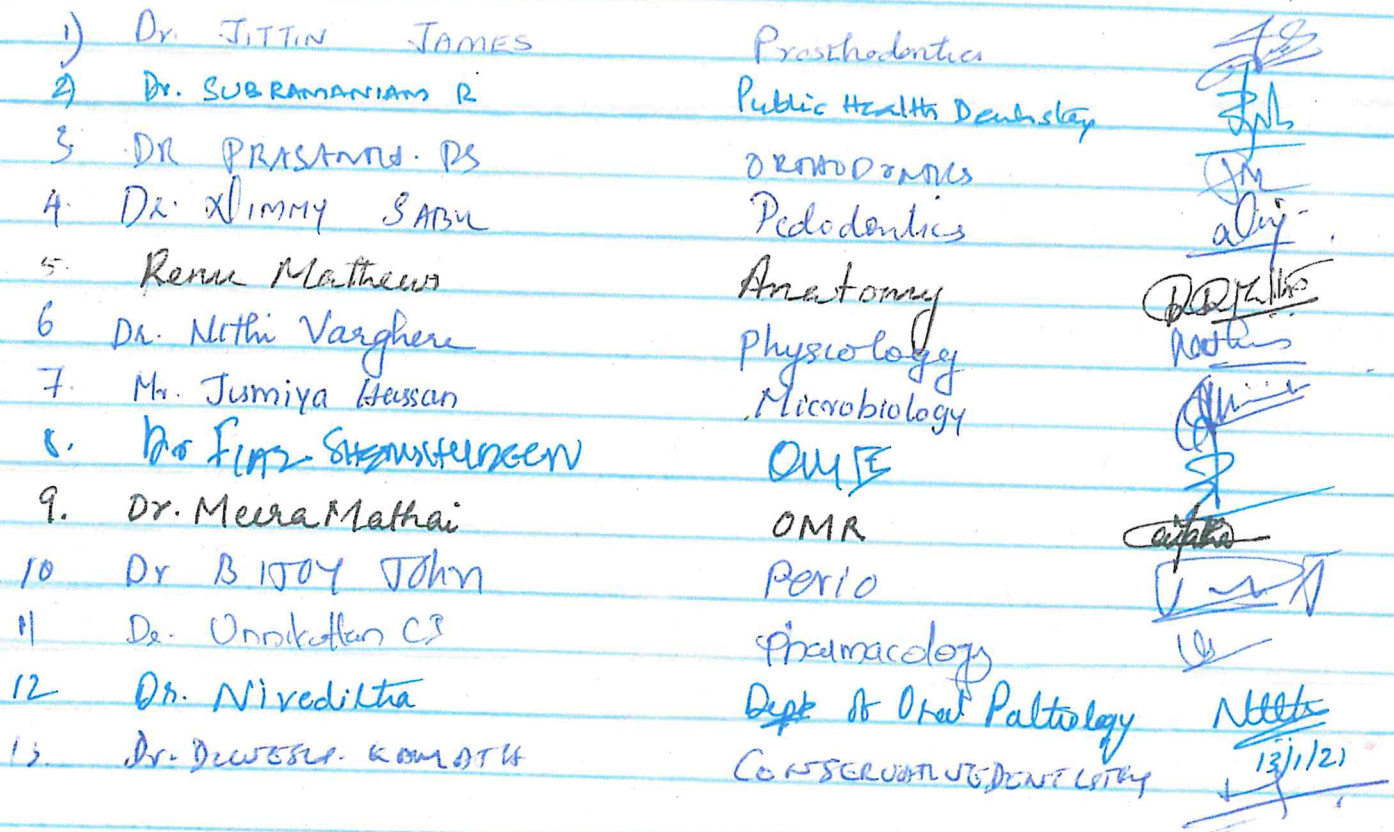 1) Dr. JITTIN JAMES Prosthodontics
2) Dr. SUBRAMANIAM R Public Health Dentistry
3. DR PRASANTH. PS ORTHODONTICS
4. DR. NIMMY SABU Pedodontics
5. Renu Mathews Anatomy
6 Dr. Nithi Varghese Physiology
7. Mr. Jumiya Hassan Microbiology
8. Dr
9. Dr. Meera Mathai OMR
10 Dr BIJOY JOHN Perio
11 Dr. Unnikuttan Pharmacology
12 Dr. Niveditha Dept of Oral Pathology
13. Dr. KAMATH CONSERVATIVE DENTISTRY 13/1/21